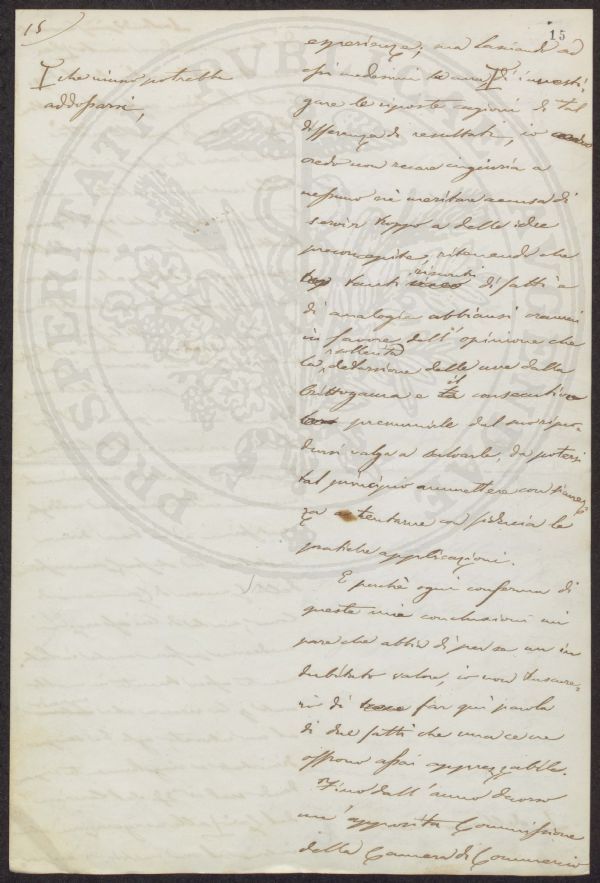 15
15
che niuno potrebbe
addossarsi,
esperienze; ma lasciando ad
essi medesimi la cura d'investi-
gare le riposte cagioni di tal
differenza di resultati, io credo
credo non recare ingiuria a
nessuno nè meritare accusa di
servir troppo a delle idee
preconcepite, ritenendo che
tanti riscontri di fatti e
di analogia abbiansi oramai
in favore dell'opinione che
la sollecita detersione delle uve dalla
Crittogama e il consecutivo
premunirle dal suo ripro-
dursi valga a salvarle, da potersi
tal principio ammettere con sicurez-
za e tentarne con fiducia le
pratiche applicazioni.
E perchè ogni conferma di
queste mie conclusioni mi
pare che abbia di per se un in-
dubitato valore, io non trascure-
rò di far quì parola
di due fatti che una ce ne
offrono assai apprezzabile.
Fino dall'anno decorso
un'apposita Commissione
della Camera di Commercio
PROSPERITATI PVBLICAE